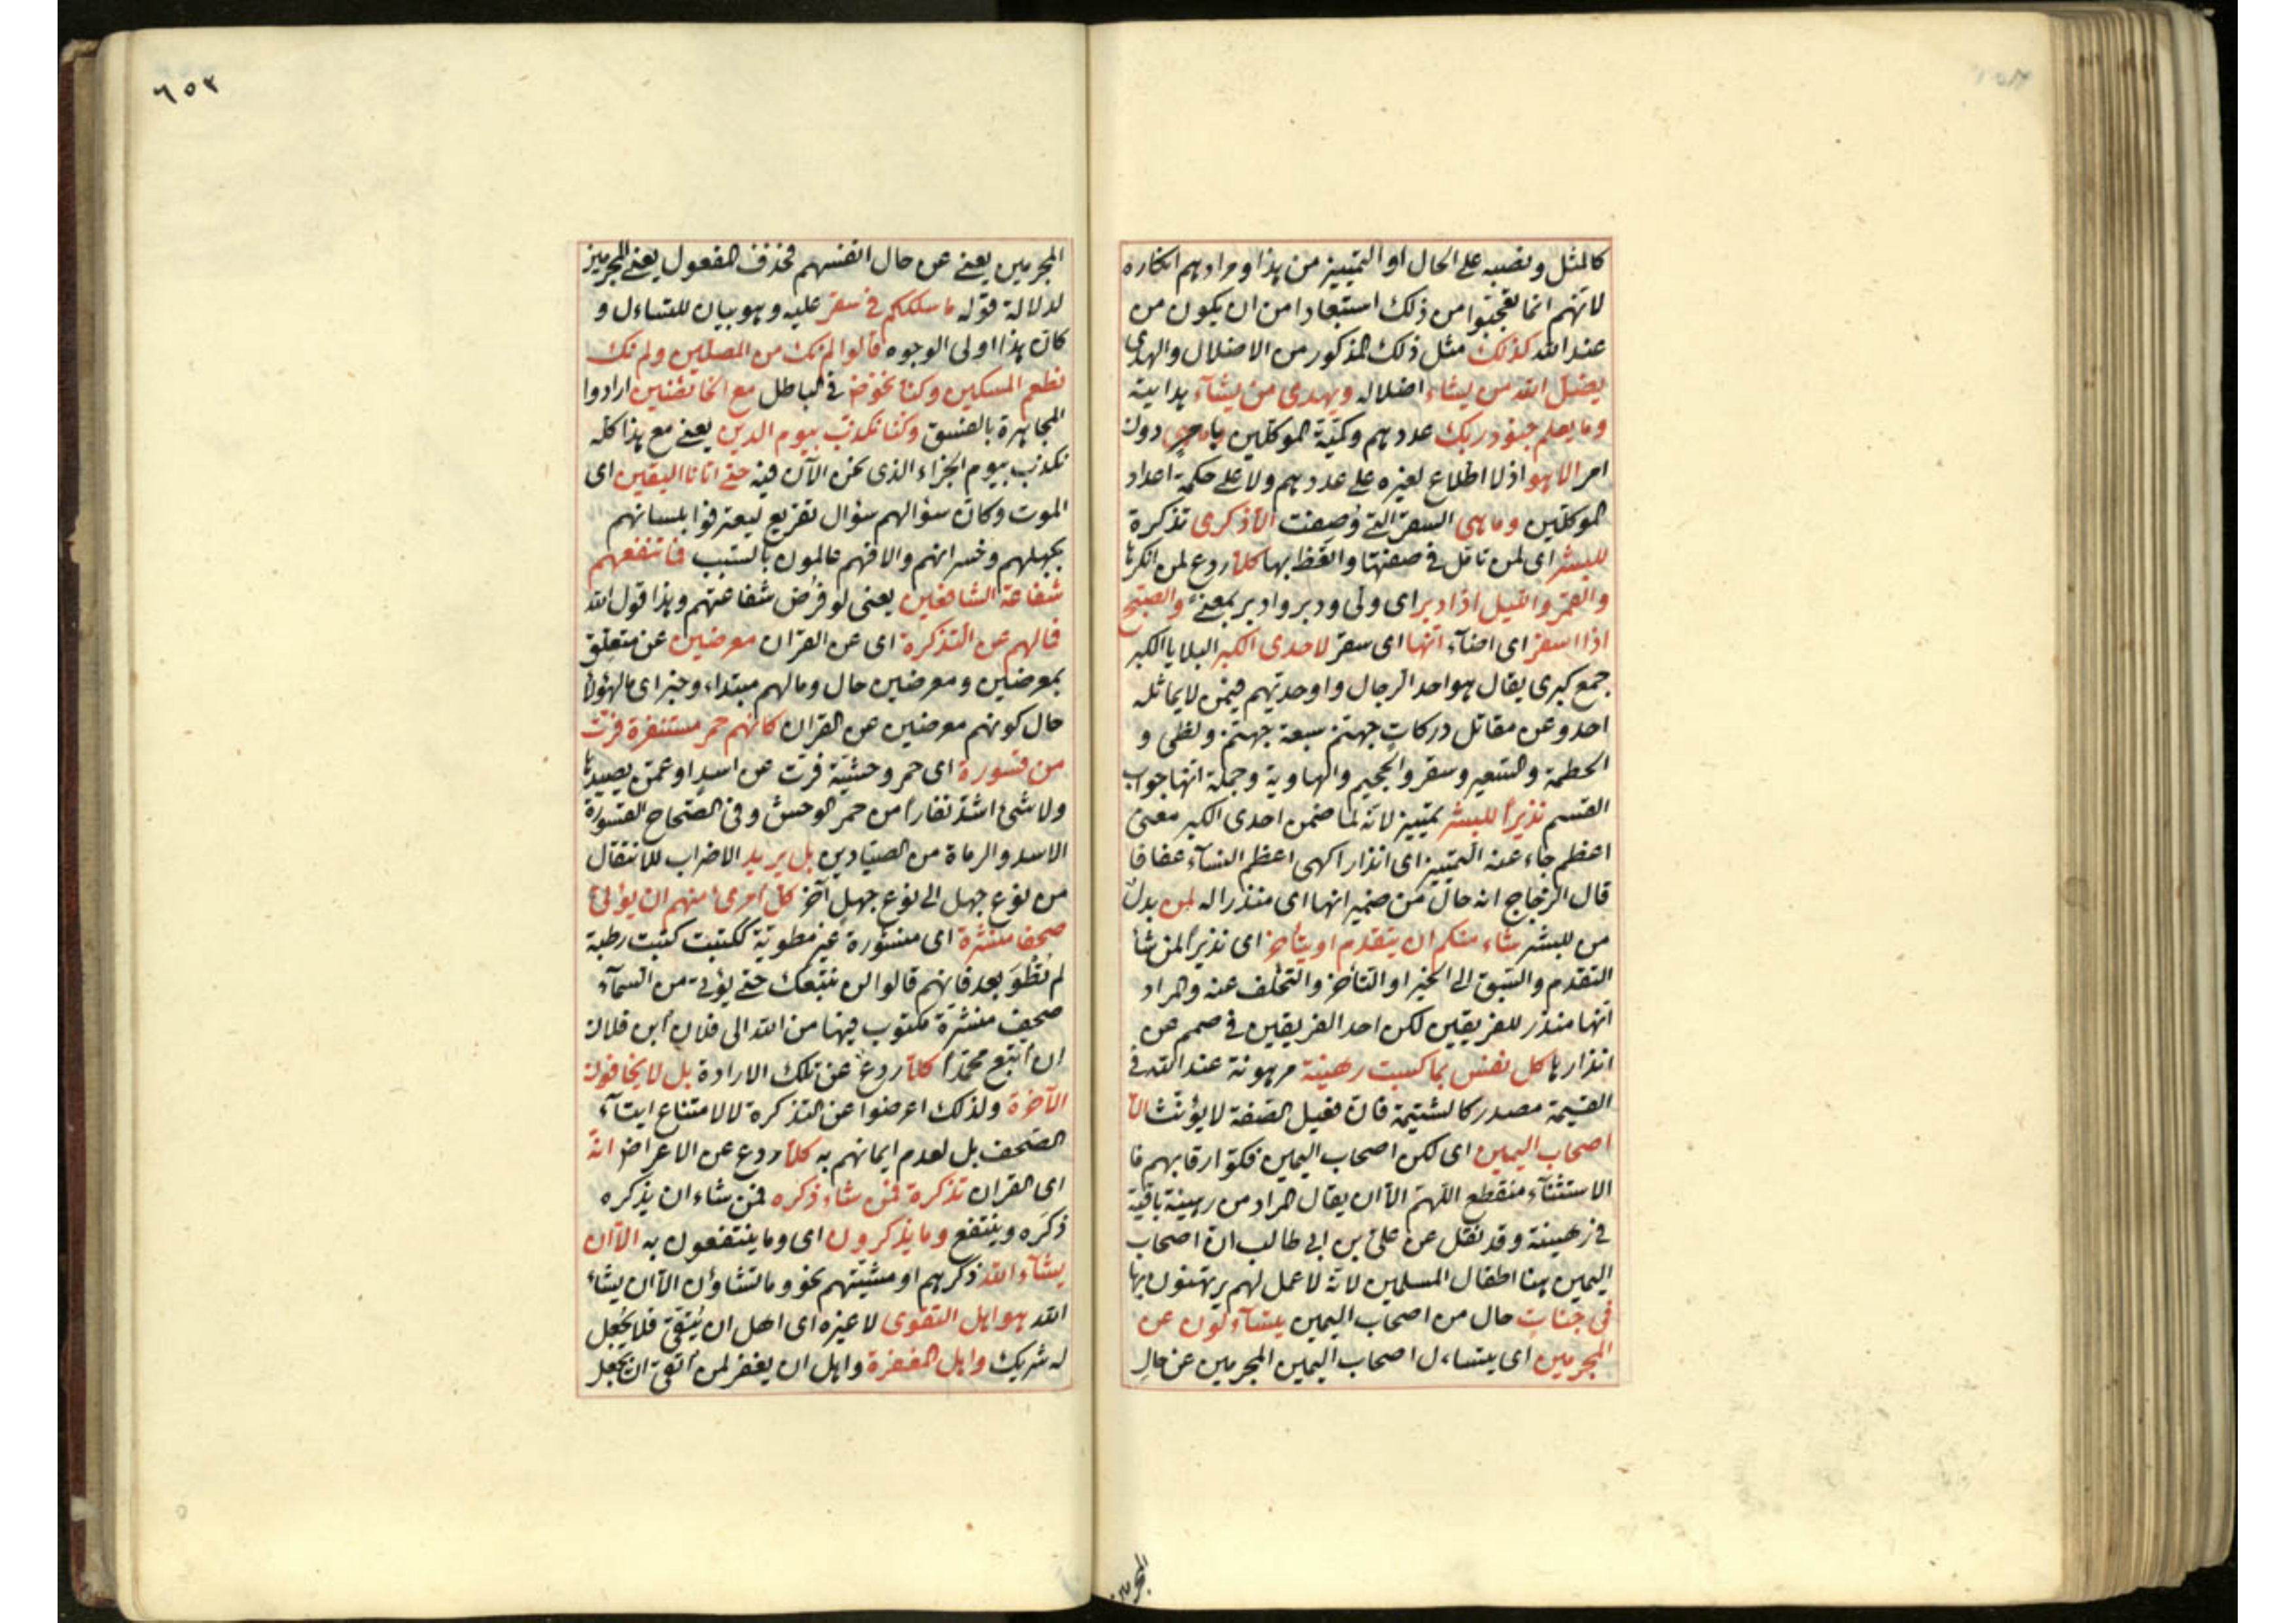 كالمثل ونصبه على الحال او التمييز من هذا ومرادهم انكاره
لانهم انما تعجبوا من ذلك استبعادا من ان يكون من
عند الله كذلك مثل ذلك المذكور من الاضلال والهدى
يضل الله من يشاء اضلاله ويهدى من يشآء هدايته
وما يعلم جنود ربك عددهم وكميّة الموكلين دون
امر الا هو اذ لا اطلاع لغيره على عددهم ولا على حكمة اعداد
الموكلين وما هى السقر التى وُصِفت الّا ذكرى تذكرة
للبشر اى لمن تامّل فى صفتها واتّعظ بها كلّا ردع لمن انكرها
والقمر والليل اذا ادبر اى ولّى ودبر وادبر بمعنىً والصبح
اذا اسفر اى اضآء انّها اى سقر لاحدى الكبر البلايا الكبر
جمع كبرى يقال هو احد الرجال واوحديّهم فيمن لا يماثله
احد وعن مقاتل دركات جهنّم سبعة جهنّم ولظى و
الحطمة والسّعير وسقر والجحيم والهاوية وجملة انّها جواب
القسم نذيراً للبشر تمييز لانّه لما ضمن احدى الكبر معنى
اعظم جاء عنه التمييز اى انذارا كهى اعظم النسآء عفافا
قال الزجاج انه حال من ضمير انها اى منذرا له لمن بدل
من للبشر شاء منكم ان يتقدم او يتأخر اى نذيراً لمن شآ
التقدم والسّبق الى الخير او التأخر والتخلّف عنه والمراد
انها منذر للفريقين لكن احد الفريقين فى صمم عن
انذارها كل نفس بما كسبت رهينة مرهونة عند الله فى
القيمة مصدر كالشتيمة فانّ فعيل الصّفة لا يؤنّث الّا
اصحاب اليمين اى لكن اصحاب اليمين فكّوا رقابهم فا
الاستثنآء منقطع اللهمّ الّا ان يقال المراد من رهينة باقية
فى رهينة وقد نقل عن علىّ بن ابى طالب انّ اصحاب
اليمين هنا اطفال المسلمين لانّه لا عمل لهم يرتهنون بها
فى جنات حال من اصحاب اليمين يتسآءلون عن
المجرمين اى يتساءل اصحاب اليمين المجرمين عن حال
المجرمين
٦٥٣
المجرمين يعنى عن حال انفسهم فحذف المفعول يعنى المجرمين
لدلالة قوله ما سلككم فى سقر عليه وهو بيان للتساءل و
كان هذا اولى الوجوه قالوا لم نك من المصلّين ولم نك
نطعم المسكين وكنّا نخوض فى الباطل مع الخائضين ارادوا
المجاهرة بالفسق وكنا نكذب بيوم الدين يعنى مع هذا كله
نكذب بيوم الجزاء الذى نحن الآن فيه حتى اتانا اليقين اى
الموت وكان سؤالهم سؤال تقريع ليعترفوا بلسانهم
بجهلهم وخسرانهم والا فهم عالمون بالسّبب فما تنفعهم
شفاعة الشافعين يعنى لو فرض شفاعتهم وهذا قول الله
فما لهم عن التذكرة اى عن القران معرضين عن متعلّق
بمعرضين ومعرضين حال وما لهم مبتداء وخبر اى ما لهؤلآ
حال كونهم معرضين عن القران كانهم حمر مستنفرة فرّت
من قسورة اى حمر وحشيّة فرّت عن اسدٍ او عمّن يصيدها
ولا شئ اشدّ نفاراً من حمر الوحش وفى الصّحاح القسورة
الاسد والرماة من الصيّادين بل يريد الاضراب للانتقال
من نوع جهل الى نوع جهلٍ آخر كل امرى منهم ان يؤتى
صحفا منشّرة اى منشورة غير مطويّة ككتبت كتبت رطبة
لم تُطوَ بعد فانهم قالوا لن نتبعك حتى يؤتى من السّمآء
صحف منشّرة مكتوب فيها من الله الى فلان ابن فلان
ان اتّبع محمّداً كلّا ردع عن تلك الارادة بل لا يخافون
الآخرة ولذلك اعرضوا عن التذكرة لا لامتناع ايتآء
الصّحف بل لعدم ايمانهم به كلّا ردع عن الاعراض انّه
اى القران تذكرة فمن شآء ذكره فمن شاء ان يذكره
ذكره وينتفع وما يذكرون اى وما ينتفعون به الّا ان
يشآء الله ذكرهم او مشيّتهم نحو وما تشاؤن الّا ان يشاء
الله هو اهل التقوى لا غيره اى اهل ان يُتّقى فلا يُجعل
له شريك واهل المغفرة واهل ان يغفر لمن اتّقى ان يجعل